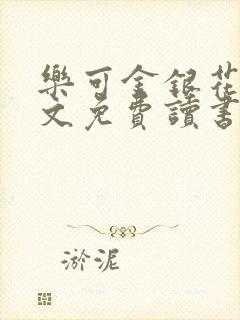 樂可金銀花
文免費讀書
淤泥